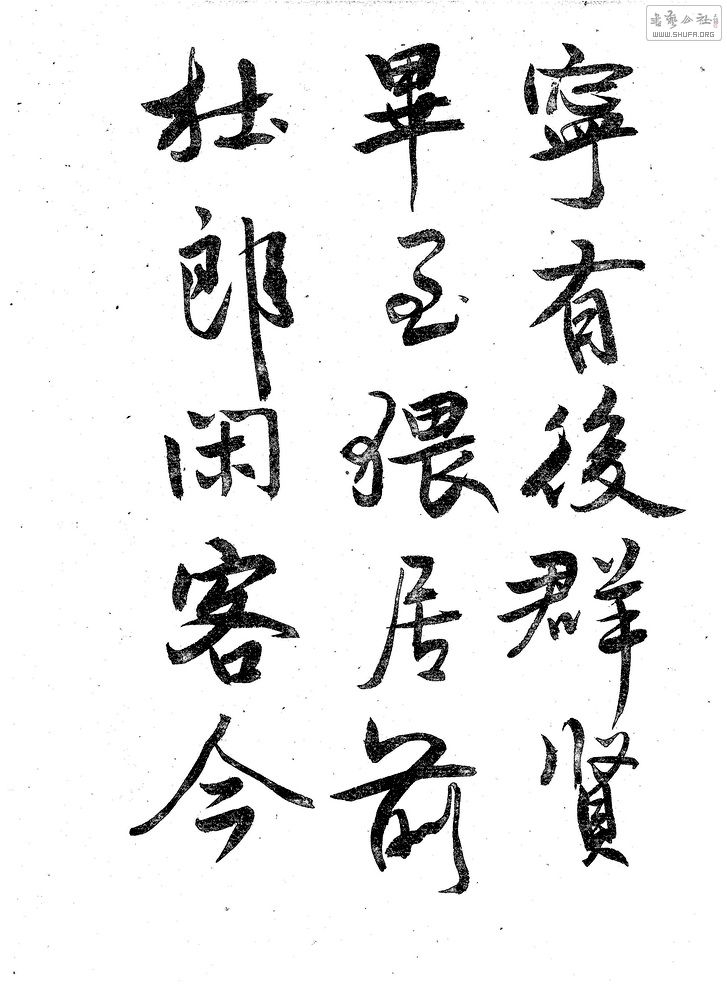 寧有後群賢
畢至猥居前
杜郎闲客今
書藝公社
WWW.SHUFA.ORG